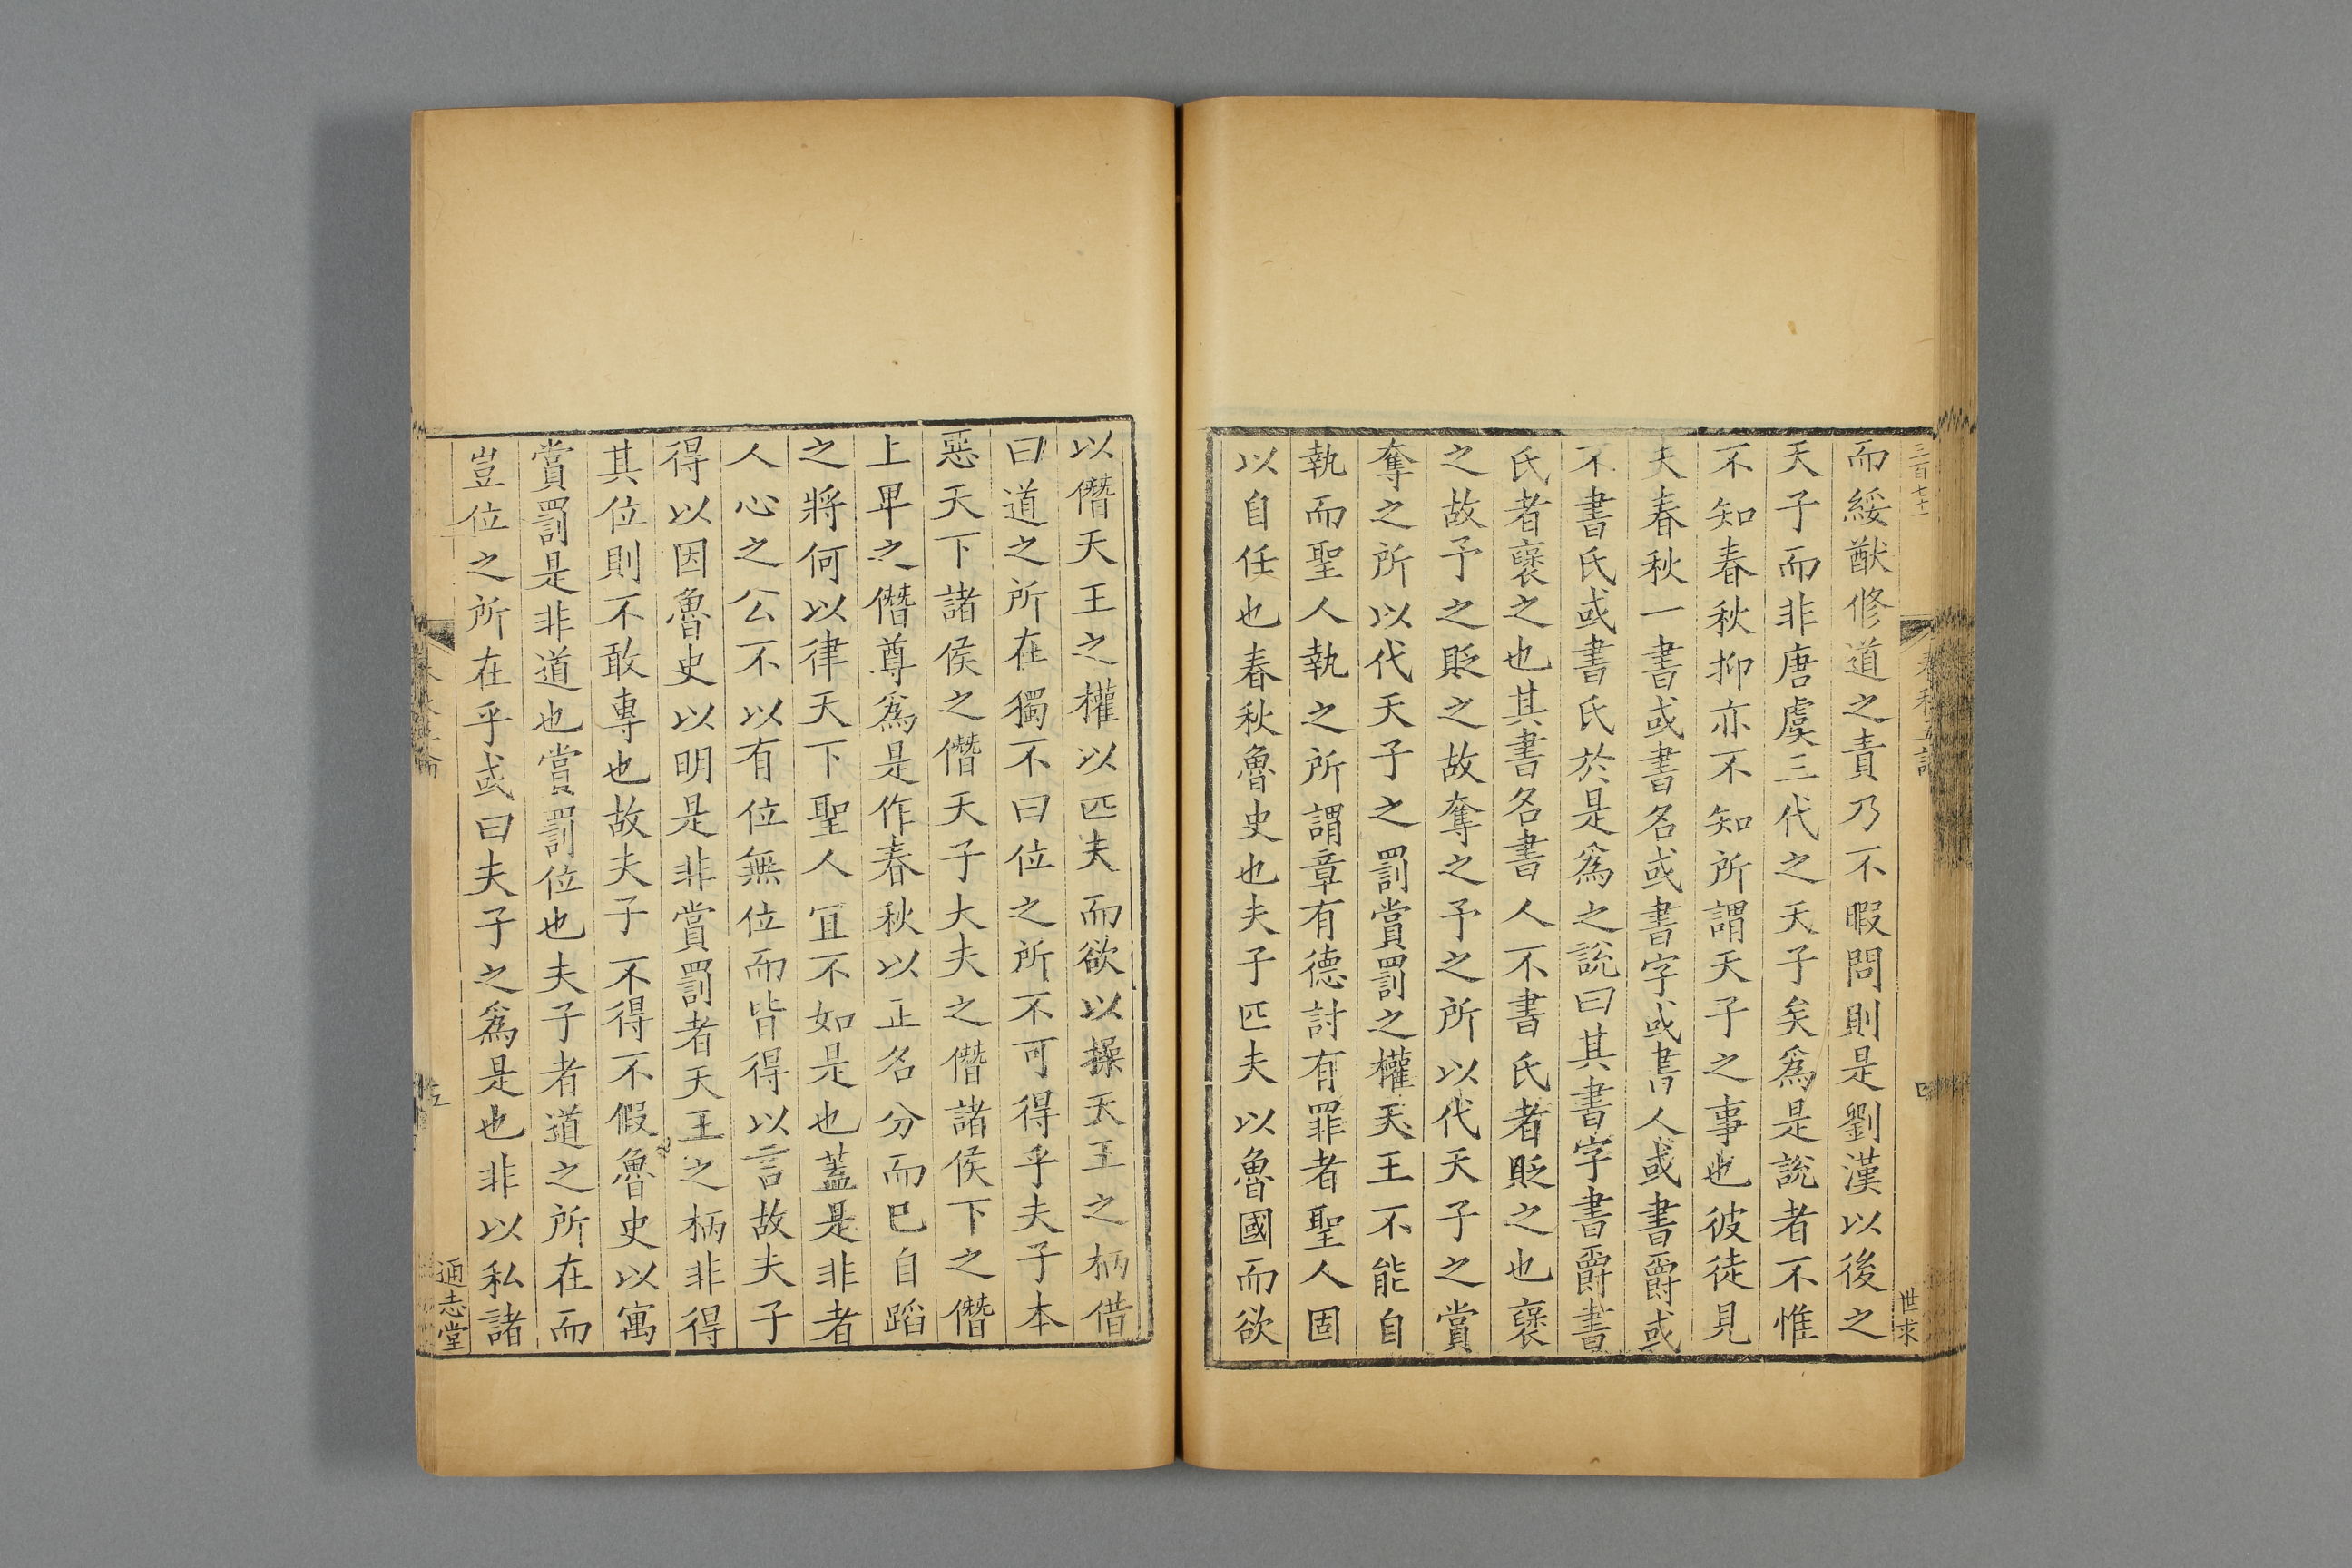 三百七十一
而綏猷修道之責乃不暇問則是劉漢以後之
天子而非唐虞三代之天子矣爲是說者不惟
不知春秋抑亦不知所謂天子之事也彼徒見
夫春秋一書或書名或書字或書人或書爵或
不書氏或書氏於是爲之說曰其書字書爵書
氏者襃之也其書名書人不書氏者貶之也襃
之故予之貶之故奪之予之所以代天子之賞
奪之所以代天子之罰賞罰之權天王不能自
執而聖人執之所謂章有德討有罪者聖人固
以自任也春秋魯史也夫子匹夫以魯國而欲
世求
以僭天王之權以匹夫而欲以操天王之柄借
曰道之所在獨不曰位之所不可得乎夫子本
惡天下諸侯之僭天子大夫之僭諸侯下之僭
上卑之僭尊爲是作春秋以正名分而已自蹈
之將何以律天下聖人宜不如是也蓋是非者
人心之公不以有位無位而皆得以言故夫子
得以因魯史以明是非賞罰者天王之柄非得
其位則不敢專也故夫子不得不假魯史以寓
賞罰是非道也賞罰位也夫子者道之所在而
豈位之所在乎或曰夫子之爲是也非以私諸
通志堂